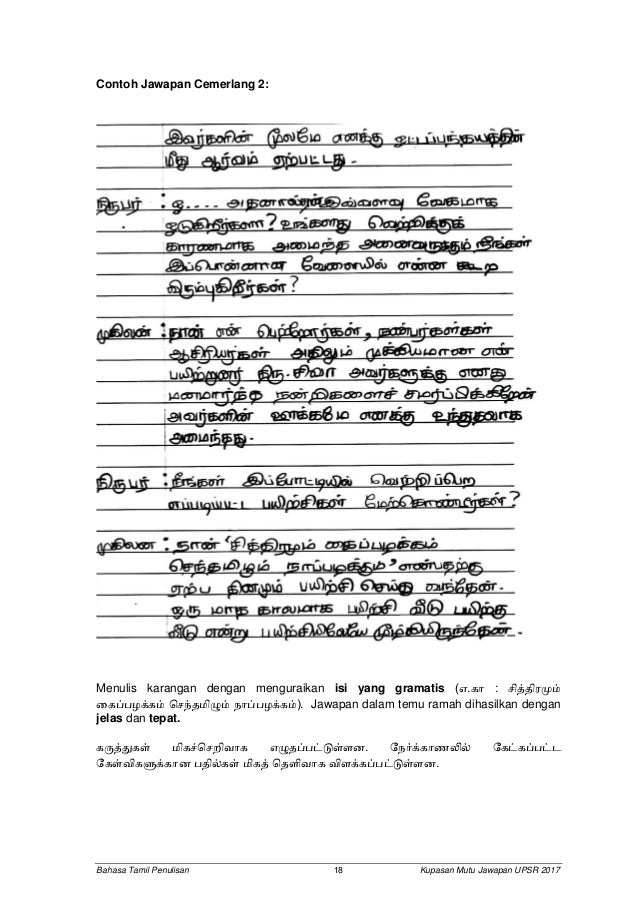 Contoh Jawapan Cemerlang 2:
இவர்களின் மூலமே எனக்கு ஓட்டப்பந்தயத்தின்
மீது ஆர்வம் ஏற்பட்டது.
நிருபர் : ஓ.... அதனால்தான்இவ்வளவு வேகமாக
ஓடுகிறீர்களா? உங்களது வெற்றிக்குக்
காரணமாக அமைந்த அனைவருக்கும் நீங்கள்
இப்பொன்னான வேளையில் என்ன கூற
விரும்புகிறீர்கள்?
முகிலன் : நான் என் பெற்றோர்கள், நண்பர்கள்கள்
ஆசிரியர்கள் அதிலும் முக்கியமான என்
பயிற்றுனர் திரு.சிவா அவர்களுக்கு எனது
மனமார்ந்த நன்றிகளைச் சமர்ப்பிக்கிறேன்
அவர்களின் ஊக்கமே எனக்கு உந்துதலாக
அமைந்தது.
நிருபர் : நீங்கள் இப்போட்டியில் வெற்றிப்பெற
எப்படிப்பட்ட பயிற்சிகள் மேற்கொண்டீர்கள்?
முகிலன் : நான் 'சித்திரமும் கைப்பழக்கம்
செந்தமிழும் நாப்பழக்கம்' என்பதற்கு
ஏற்ப தினமும் பயிற்சி செய்து வந்தேன்.
ஒரு மாத காலமாக பயிற்சி வீடு பயிற்சி
வீடு என்று பயிற்சியிலேயே மூழ்கியிருந்தேன்.
Menulis karangan dengan menguraikan isi yang gramatis (எ.கா : சித்திரமும்
கைப்பழக்கம் செந்தமிழும் நாப்பழக்கம்). Jawapan dalam temu ramah dihasilkan dengan
jelas dan tepat.
கருத்துகள் மிகச்செறிவாக எழுதப்பட்டுள்ளன. நேர்க்காணலில் கேட்கப்பட்ட
கேள்விகளுக்கான பதில்கள் மிகத் தெளிவாக விளக்கப்பட்டுள்ளன.
Bahasa Tamil Penulisan 18 Kupasan Mutu Jawapan UPSR 2017